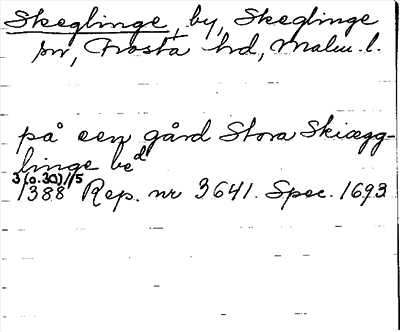 Skeglinge, by, Skeglinge
sn, Frosta hd, Malm. l.
på een gård Stora Skiægg-
linge be^d
3(o.30)/15
1388 Rep. nr 3641. Spec. 1693